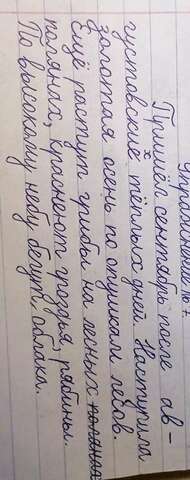 Упражнение 7
Пришёл сентябрь после ав-
густовских тёплых дней. Наступила
золотая осень по опушкам лесов.
Ещё растут грибы на лесных
полянах, краснеют гроздья рябины.
По высокому небу бегут облака.